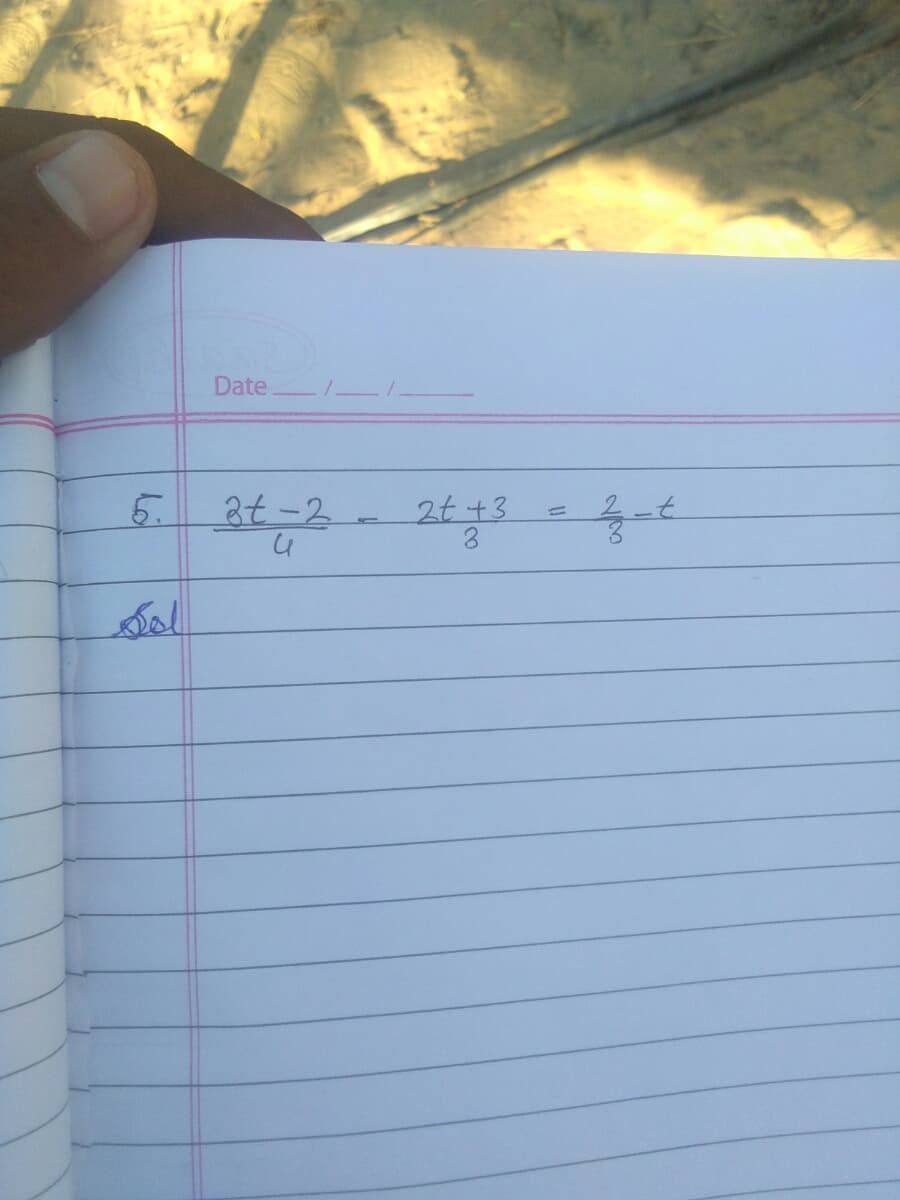 Date ___/___/______
5. 3t-2/4 - 2t+3/3 = 2/3-t
Sol